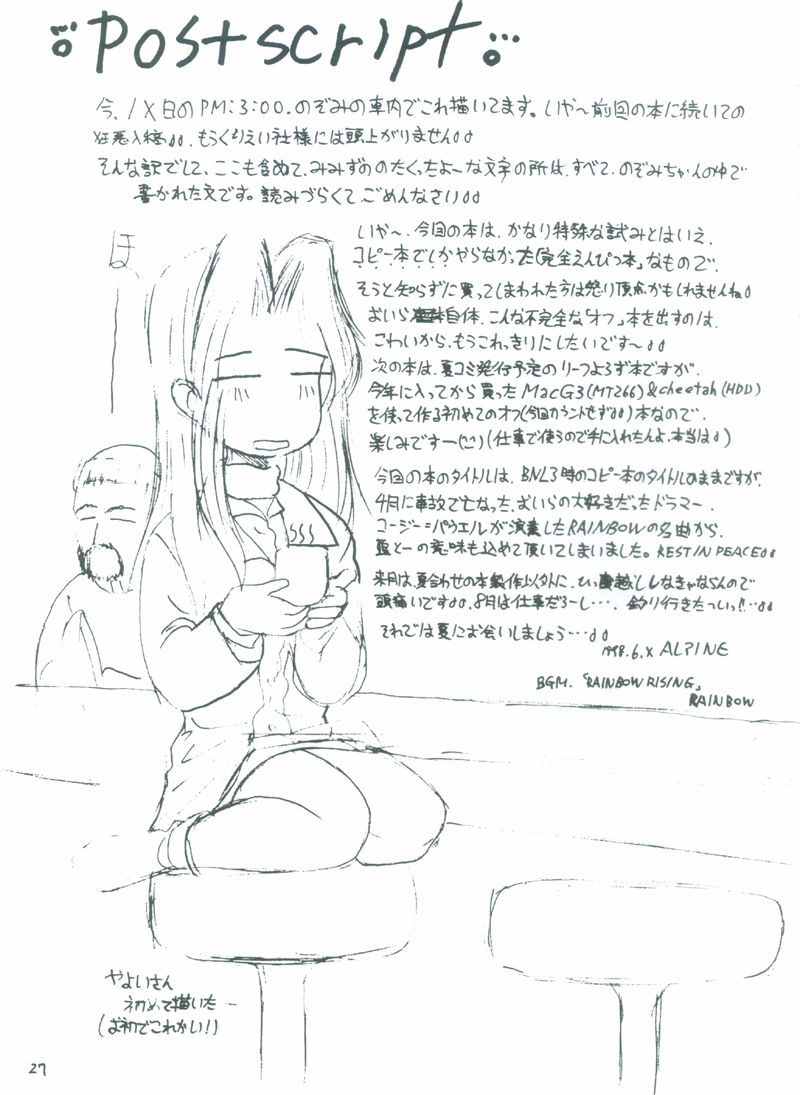 Postscript
今、1X日のPM:3:00.のぞみの車内でこれ描いてます。いや〜前回の本に続いての
狂悪入稿♪♪、もうくりえい社様には頭上がりません♪♪
そんな訳でして、ここも含めて、みみずののたくったよーな文字の所は、すべて、のぞみちゃんの中で
書かれた文です。読みづらくて、ごめんなさい♪♪
ほ
いや〜、今回の本は、かなり特殊な試みとはいえ、
コピー本でしかやらなかった「完全えんぴつ本」なもので、
そうと知らずに買ってしまわれた方は怒り頂点かもしれませんね♪
おいら自体、こんな不完全な「オフ」本を出すのは、
こわいから、もうこれっきりにしたいです〜♪♪
次の本は、夏コミ発行予定のリーフよろず本ですが、
今年に入ってから買ったMacG3(MT266)&cheetah(HDD)
を使って作る初めてのオフ(今回カウントせず♪♪)本なので、
楽しみですー(仕事で使うので手に入れたんよ、本当は♪)
今回の本のタイトルは、BNL3時のコピー本のタイトルのままですが、
4月に事故で亡なった、おいらの大好きだったドラマー、
コージー=パウエルが演奏したRAINBOWの名曲から、
の意味も込めて頂いてしまいました。REST IN PEACE♪♪
来月は、夏合わせの本製作以外に、ひっ越ししなきゃならんので
頭痛いです♪♪、8月は仕事だろーし…、釣り行きたっいっ!!…♪♪
それでは夏にお会いしましょう…♪♪
1998.6.X ALPINE
BGM.「RAINBOW RISING」
RAINBOW
やよいさん
初めて描いたー
(お初でこれかい!)
27